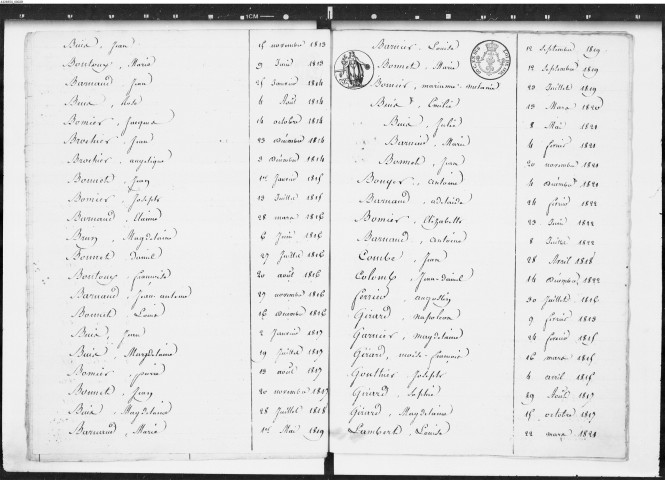 Buis, Jean 15 novembre 1813
Bontoux, Marie 9 Juin 1813
Barnaud, Jean 25 Janvier 1814
Buis, Rose 4 Août 1814
Bomier, Jacques 14 octobre 1814
Brochier, Jean 23 Décembre 1814
Brochier, angelique 3 Décembre 1814
Bonnet, Jean 1er Janvier 1815
Bomier, Joseph 13 Juillet 1815
Barnaud, 28 mars 1816
Brun, Magdelaine 6 Juin 1816
Bonnet, Daniel 27 Juillet 1816
Bontoux, francoise 20 août 1816
Barnaud, Jean antoine 27 novembre 1816
Bonnet, Louis 16 Décembre 1816
Buis, Jean 2 Janvier 1817
Buis, Magdelaine 19 Juillet 1817
Bomier, 13 août 1817
Bonnet, Jean 20 novembre 1817
Buis, Magdelaine 28 Juillet 1818
Barnaud, Marie 1er Mai 1819
Barnier, Louise 12 Septembre 1819
Bonnet, Marie 12 Septembre 1819
Bomier, marianne melanie 23 Juillet 1819
Buis, Emilie 13 Mars 1820
Buis, Julie 8 Mai 1821
Barnier, Marie 4 fevrier 1821
Bonnet, Jean 20 novembre 1821
Bouger, antoine 4 Décembre 1821
Barnaud, adelaide 24 fevrier 1822
Bomier, Elizabeth 23 Juin 1822
Barnaud, antoine 8 Juillet 1822
Combe, Jean 28 Avril 1818
Colomb, Jean daniel 14 Décembre 1822
ferrier, augustin 30 Juillet 1816
Girard, napoleon 9 fevrier 1813
Garnier, magdelaine 24 fevrier 1815
Girard, francois 16 mars 1815
Gouthier, Joseph 4 avril 1815
Girard, Sophie 29 Août 1817
Girard, Magdelaine 15 octobre 1817
Lambert, Louise 22 mars 1821